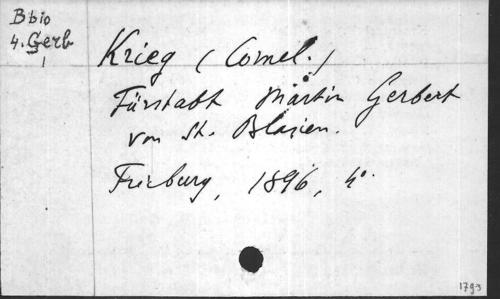 Bbio
4. Gerb
1
Krieg (Cornel.)
Fürstabt Martin Gerbert
von St. Blasien.
Freiburg, 1896, 4°.
1793